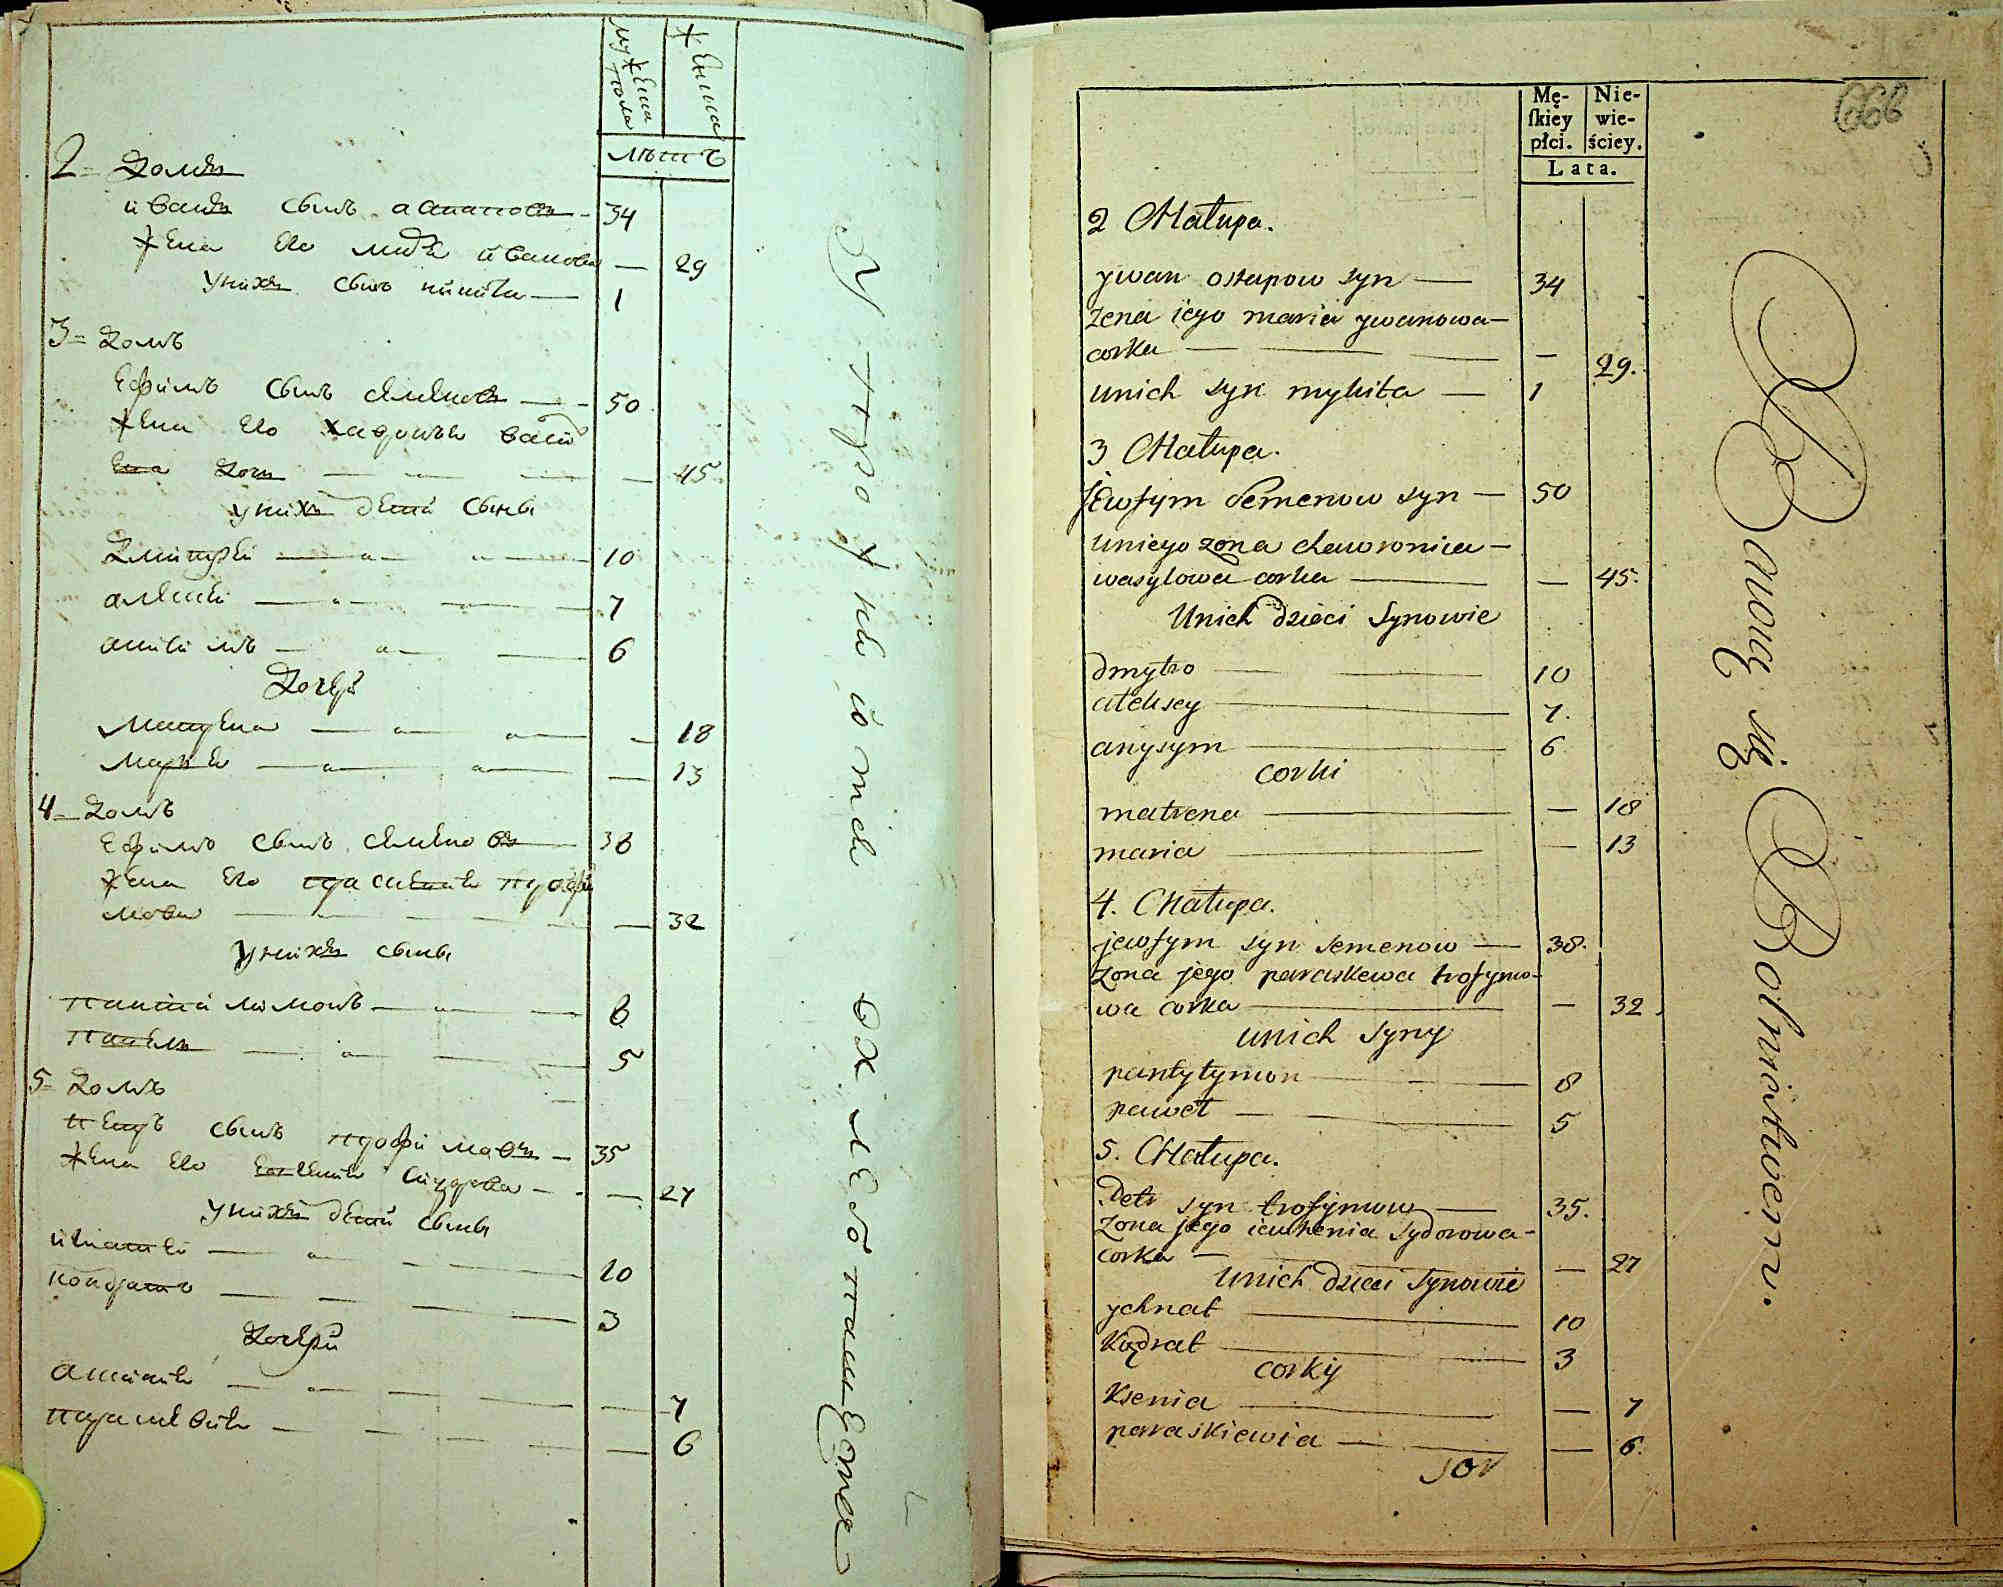 мужеска пола
женска
лѣтъ
2 = домъ
иванъ сынъ астаповъ - 34
жена его ивановна — 29
унихъ сынъ никита — 1
3 = домъ
Ефимъ сынъ семеновъ — 50
жена его хавронья васи
ева дочь — 45
унихъ дети сыны
Дмитрей — 10
алексей — 7
анисимъ — 6
Дочери
Матрена — 18
Марья — 13
4 = домъ
Ефимъ сынъ семеновъ 38
жена его прасковья трофи
мова — 32
унихъ сыны
пантилимонъ — 8
павелъ — 5
5 = домъ
петръ сынъ трофимовъ — 35
жена его евгения сидорова — 27
унихъ дети сыны
игнатей — 10
кондратъ — 3
Дочери
аксинья — 7
парасковья — 6
Mę-
ſkiey
płci.
Nie-
wie-
ściey.
Lata.
666
2 Chałupa.
ywan ostapow syn — 34
żena iego maria ywanowa—
corka — 29.
unich syn mykita — 1
3 Chałupa.
Jewfym Semenow syn — 50
uniego żona chawronia —
wasylowa corka — 45.
Unich dzieci Synowie
dmytro — 10
aleksey — 7.
anysym — 6
corki
matrena — 18
maria — 13
4. Chałupa.
jewfym syn semenow — 38.
żona jego paraskewa trofymo-
wa corka — 32.
unich syny
pantylymon — 8
paweł — 5
5. Chałupa.
Petr syn trofymow — 35.
żona jego iewhenia sydorowa-
corka — 27
unich dzieci Synowie
yhnat — 10
Kądrat — 3
corky
Ksenia — 7
paraskiewia — 6.
Bawią się Rolnictwem.